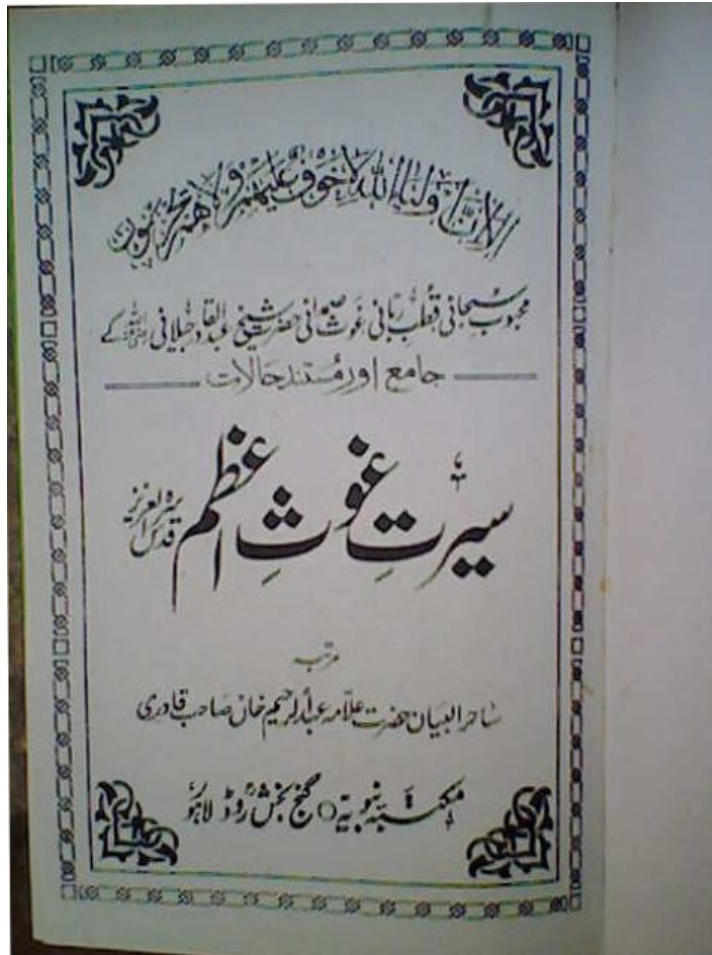 الا ان اولیاء اللہ لا خوف علیھم ولا ھم یحزنون
محبوب سبحانی قطب ربانی غوث صمدانی حضرت شیخ عبدالقادر جیلانی کے
جامع اور مستند حالات
سیرتِ غوثِ اعظم قدس سرہ العزیز
مرتبہ
ساحر البیان حضرت علامہ عبدالرحیم خان صاحب قادری
مکتبہ نبویہ ○ گنج بخش روڈ لاہور